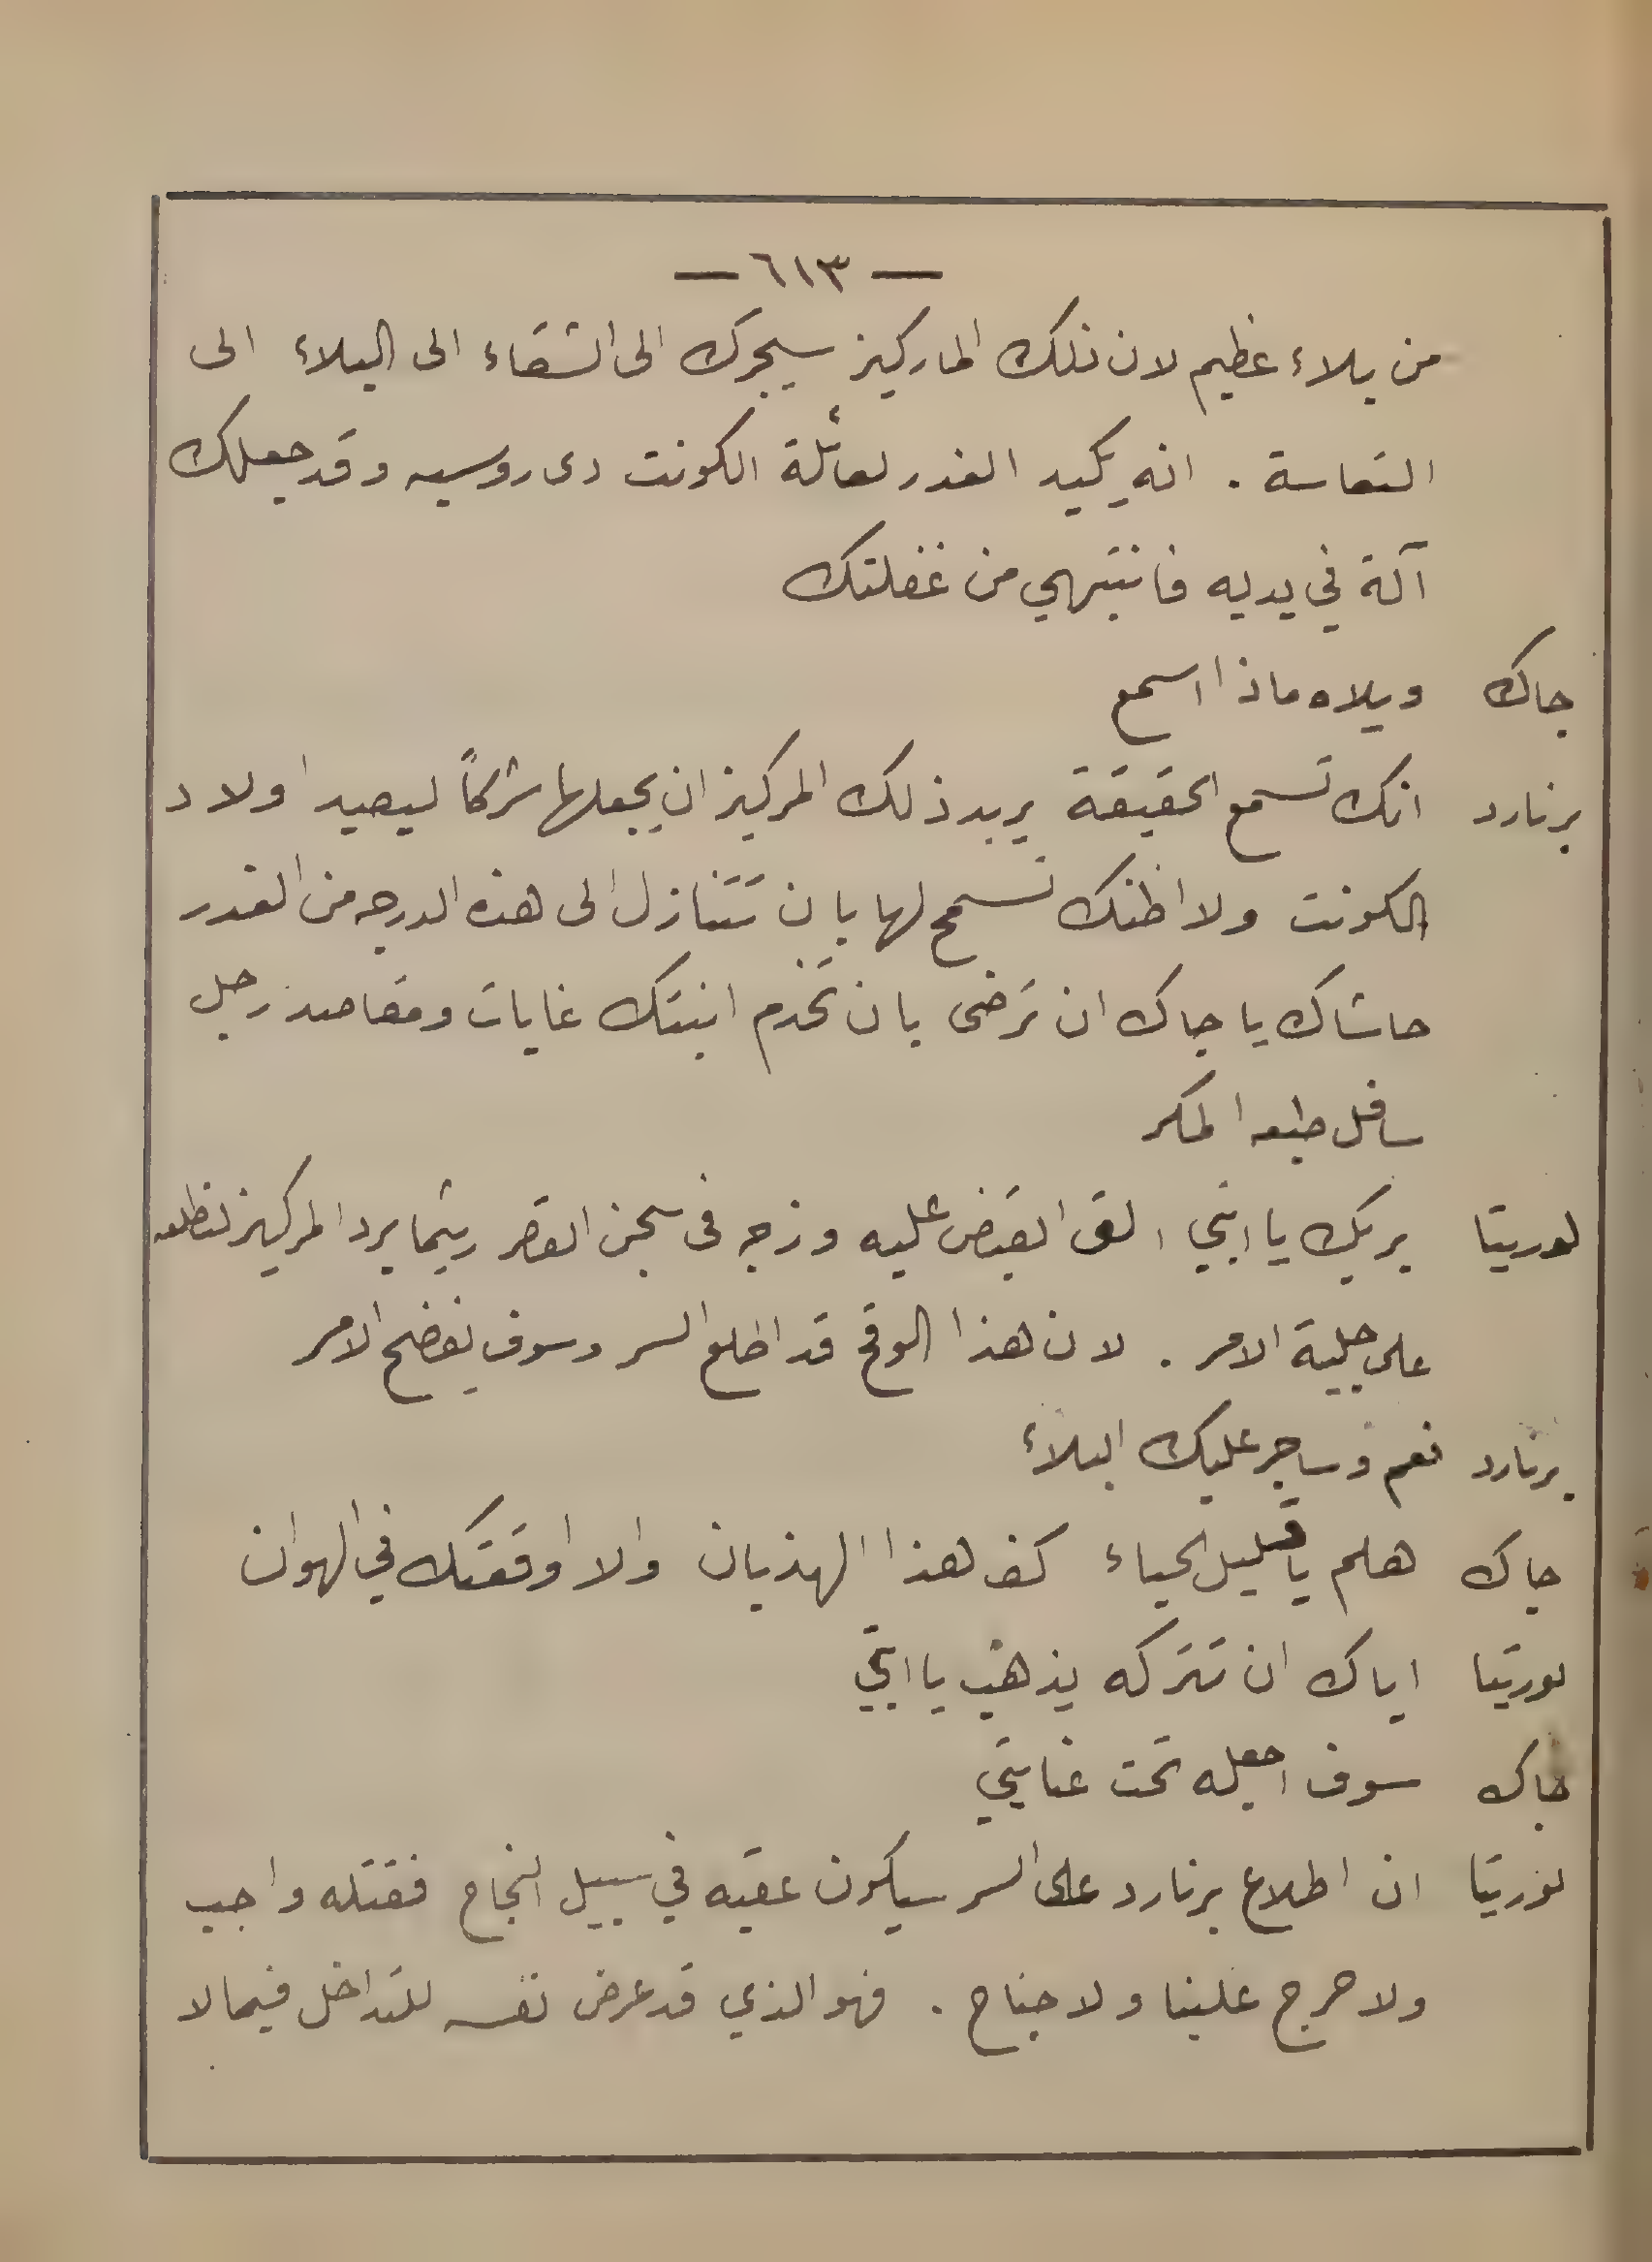 — ٦١٣ —
من بلاء عظيم لان ذلك الماركيز سيجرك الى الشقاء الى البلاء الى
التعاسة . انه يكيد الغدر لعائلة الكونت دى روسيه وقد جعلك
آلة في يديه فانتبهي من غفلتك
جاك ويلاه ماذا اسمع
برنارد انك تسمع الحقيقة يريد ذلك المركيز ان يجعلها شركاً ليصيد اولاد
الكونت ولا اظنك تسمح لها بان تتنازل الى هذه الدرجه من الغدر
حاشاك يا جاك ان ترضى بان تخدم ابنتك غايات ومقاصد رجل
سافل طبعه المكر
لوريتا بربك يا ابتي الق القبض عليه وزجه فى سجن القصر ريثما يرد المركيز لنطلعه
على جلية الامر . لان هذا الوقح قد اطلع السر وسوف يفضح الامر
برنارد نعم وساجر عليك البلاء
جاك هلم يا قليل الحياء كف هذا الهذيان والا اوقعتك في الهوان
لوريتا اياك ان تتركه يذهب يا ابتي
جاك سوف اجعله تحت عنايتي
لوريتا ان اطلاع برنارد على السر سيكون عقبه في سبيل النجاح فقتله واجب
ولا حرج علينا ولا جناح . فهو الذي قد عرض نفسه للتداخل فيما لا